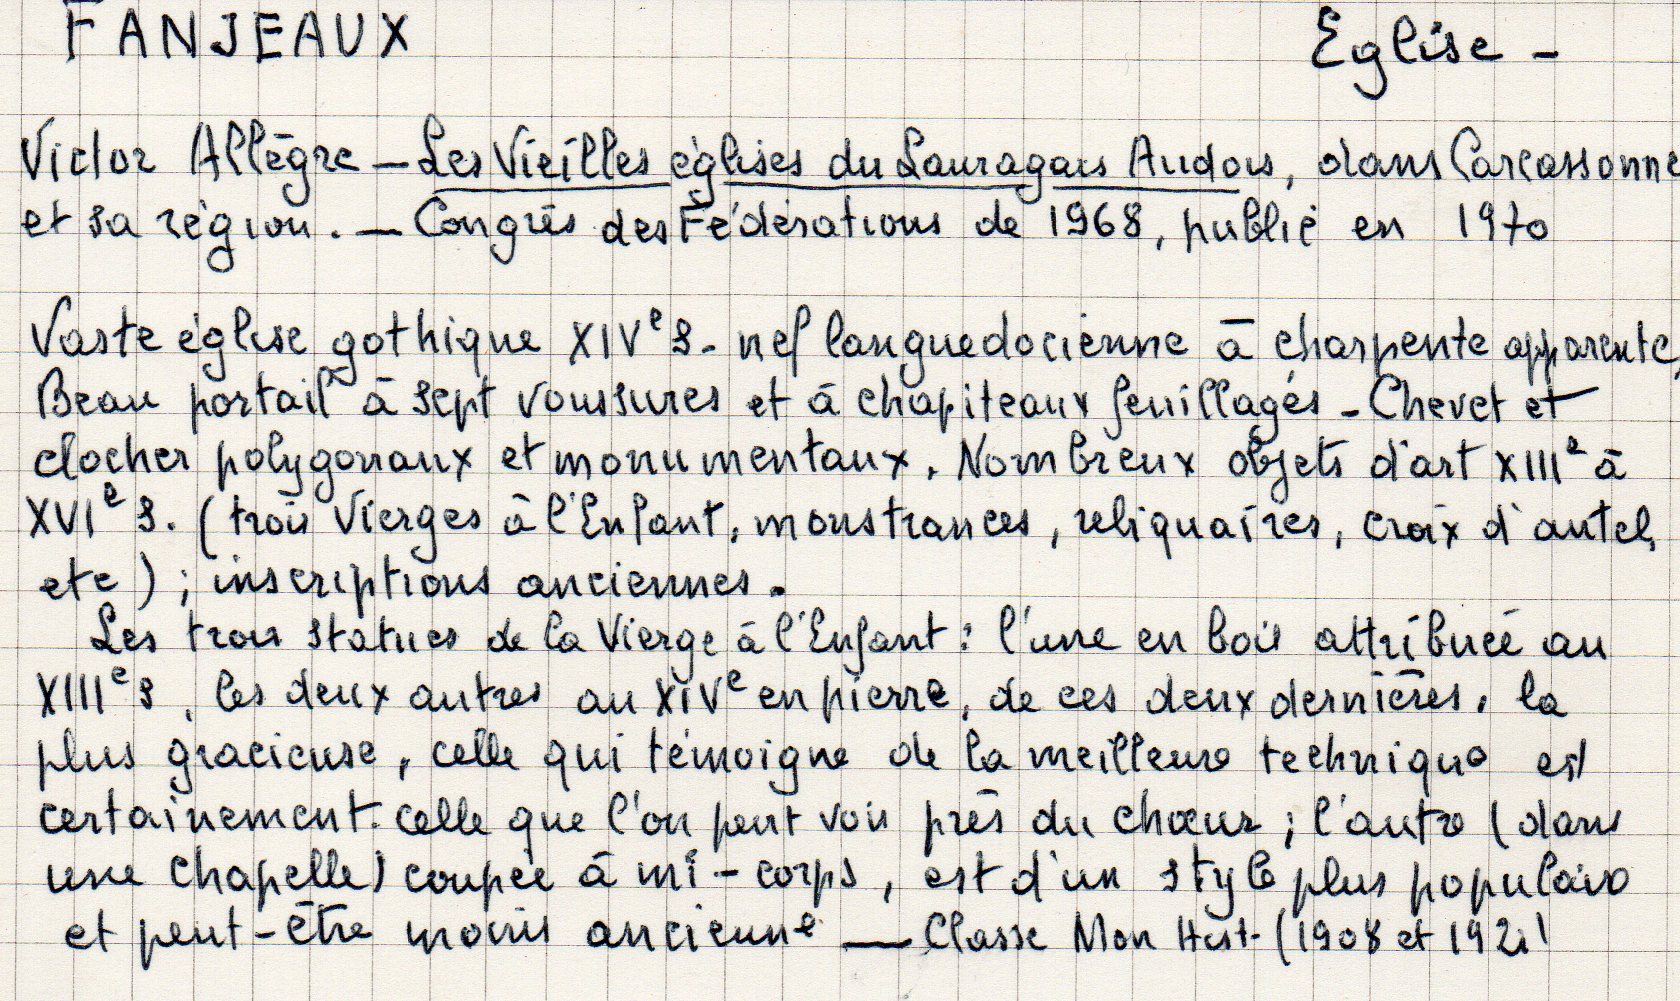 FANJEAUX Eglise -
Victor Allègre - Les Vieilles églises du Lauragais Audois, dans Carcassonne
et sa région. - Congrès des Fédérations de 1968, publié en 1970
Vaste église gothique XIVe s. nef languedocienne à charpente apparente,
Beau portail à sept voussures et à chapiteaux feuillagés - Chevet et
clocher polygonaux et monumentaux. Nombreux objets d'art XIIIe à
XVIe s. (trois Vierges à l'Enfant, monstrances, reliquaires, croix d'autel,
etc) ; inscriptions anciennes.
Les trois statues de la Vierge à l'Enfant : l'une en bois attribuée au
XIIIe s, les deux autres au XIVe en pierre, de ces deux dernières, la
plus gracieuse, celle qui témoigne de la meilleure technique est
certainement celle que l'on peut voir près du chœur ; l'autre (dans
une chapelle) coupée à mi-corps, est d'un style plus populaire
et peut-être moins ancienne — Classé Mon Hist. (1908 et